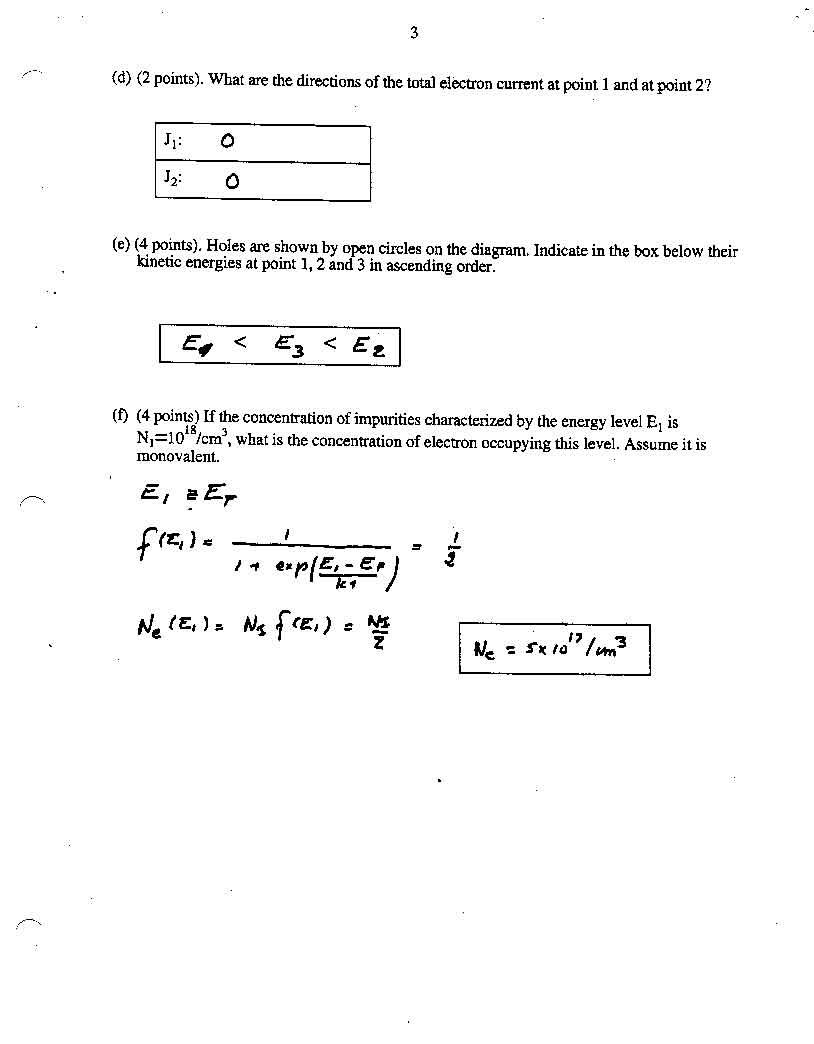 3
(d) (2 points). What are the directions of the total electron current at point 1 and at point 2?
J₁: 0
J₂: 0
(e) (4 points). Holes are shown by open circles on the diagram. Indicate in the box below their
kinetic energies at point 1, 2 and 3 in ascending order.
E₁ < E₃ < E₂
(f) (4 points) If the concentration of impurities characterized by the energy level E₁ is
N₁=10¹⁸/cm³, what is the concentration of electron occupying this level. Assume it is
monovalent.
E₁ ≅ E_F
f(E₁) = 1 / (1 + exp((E₁ - E_F)/kT)) = 1/2
Nₑ(E₁) = N₁ f(E₁) = N₁/2
Nₑ = 5x10¹⁷/cm³